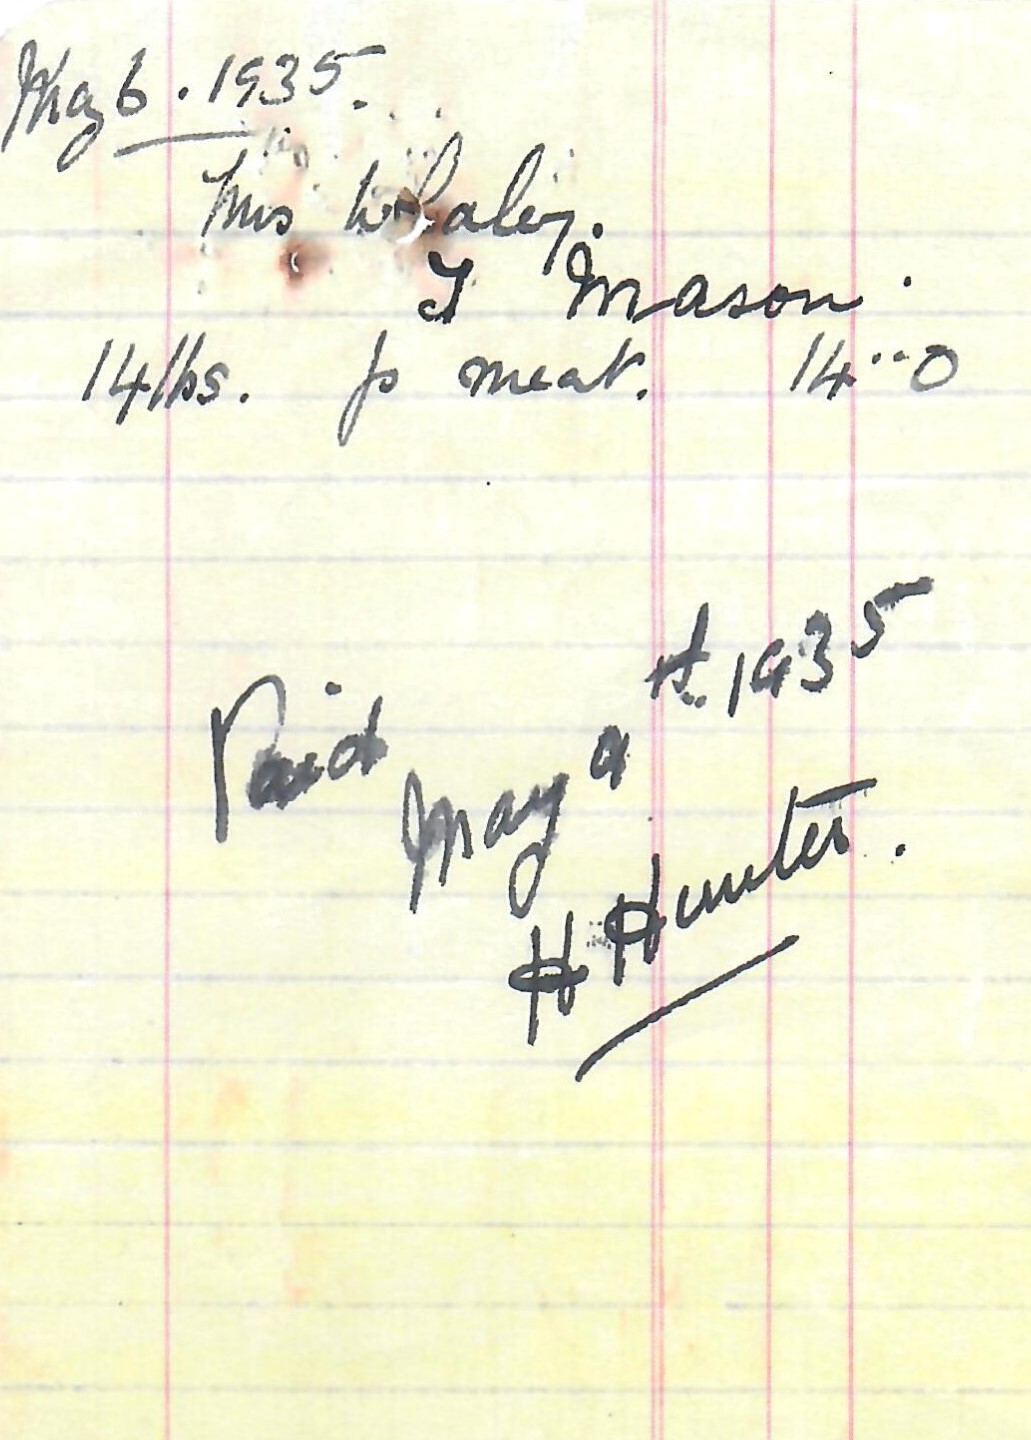 May 6. 1935.
Mrs Whaley.
J Mason.
14 lbs. p meat. 14..0
Paid May 9th. 1935
H Hunter.